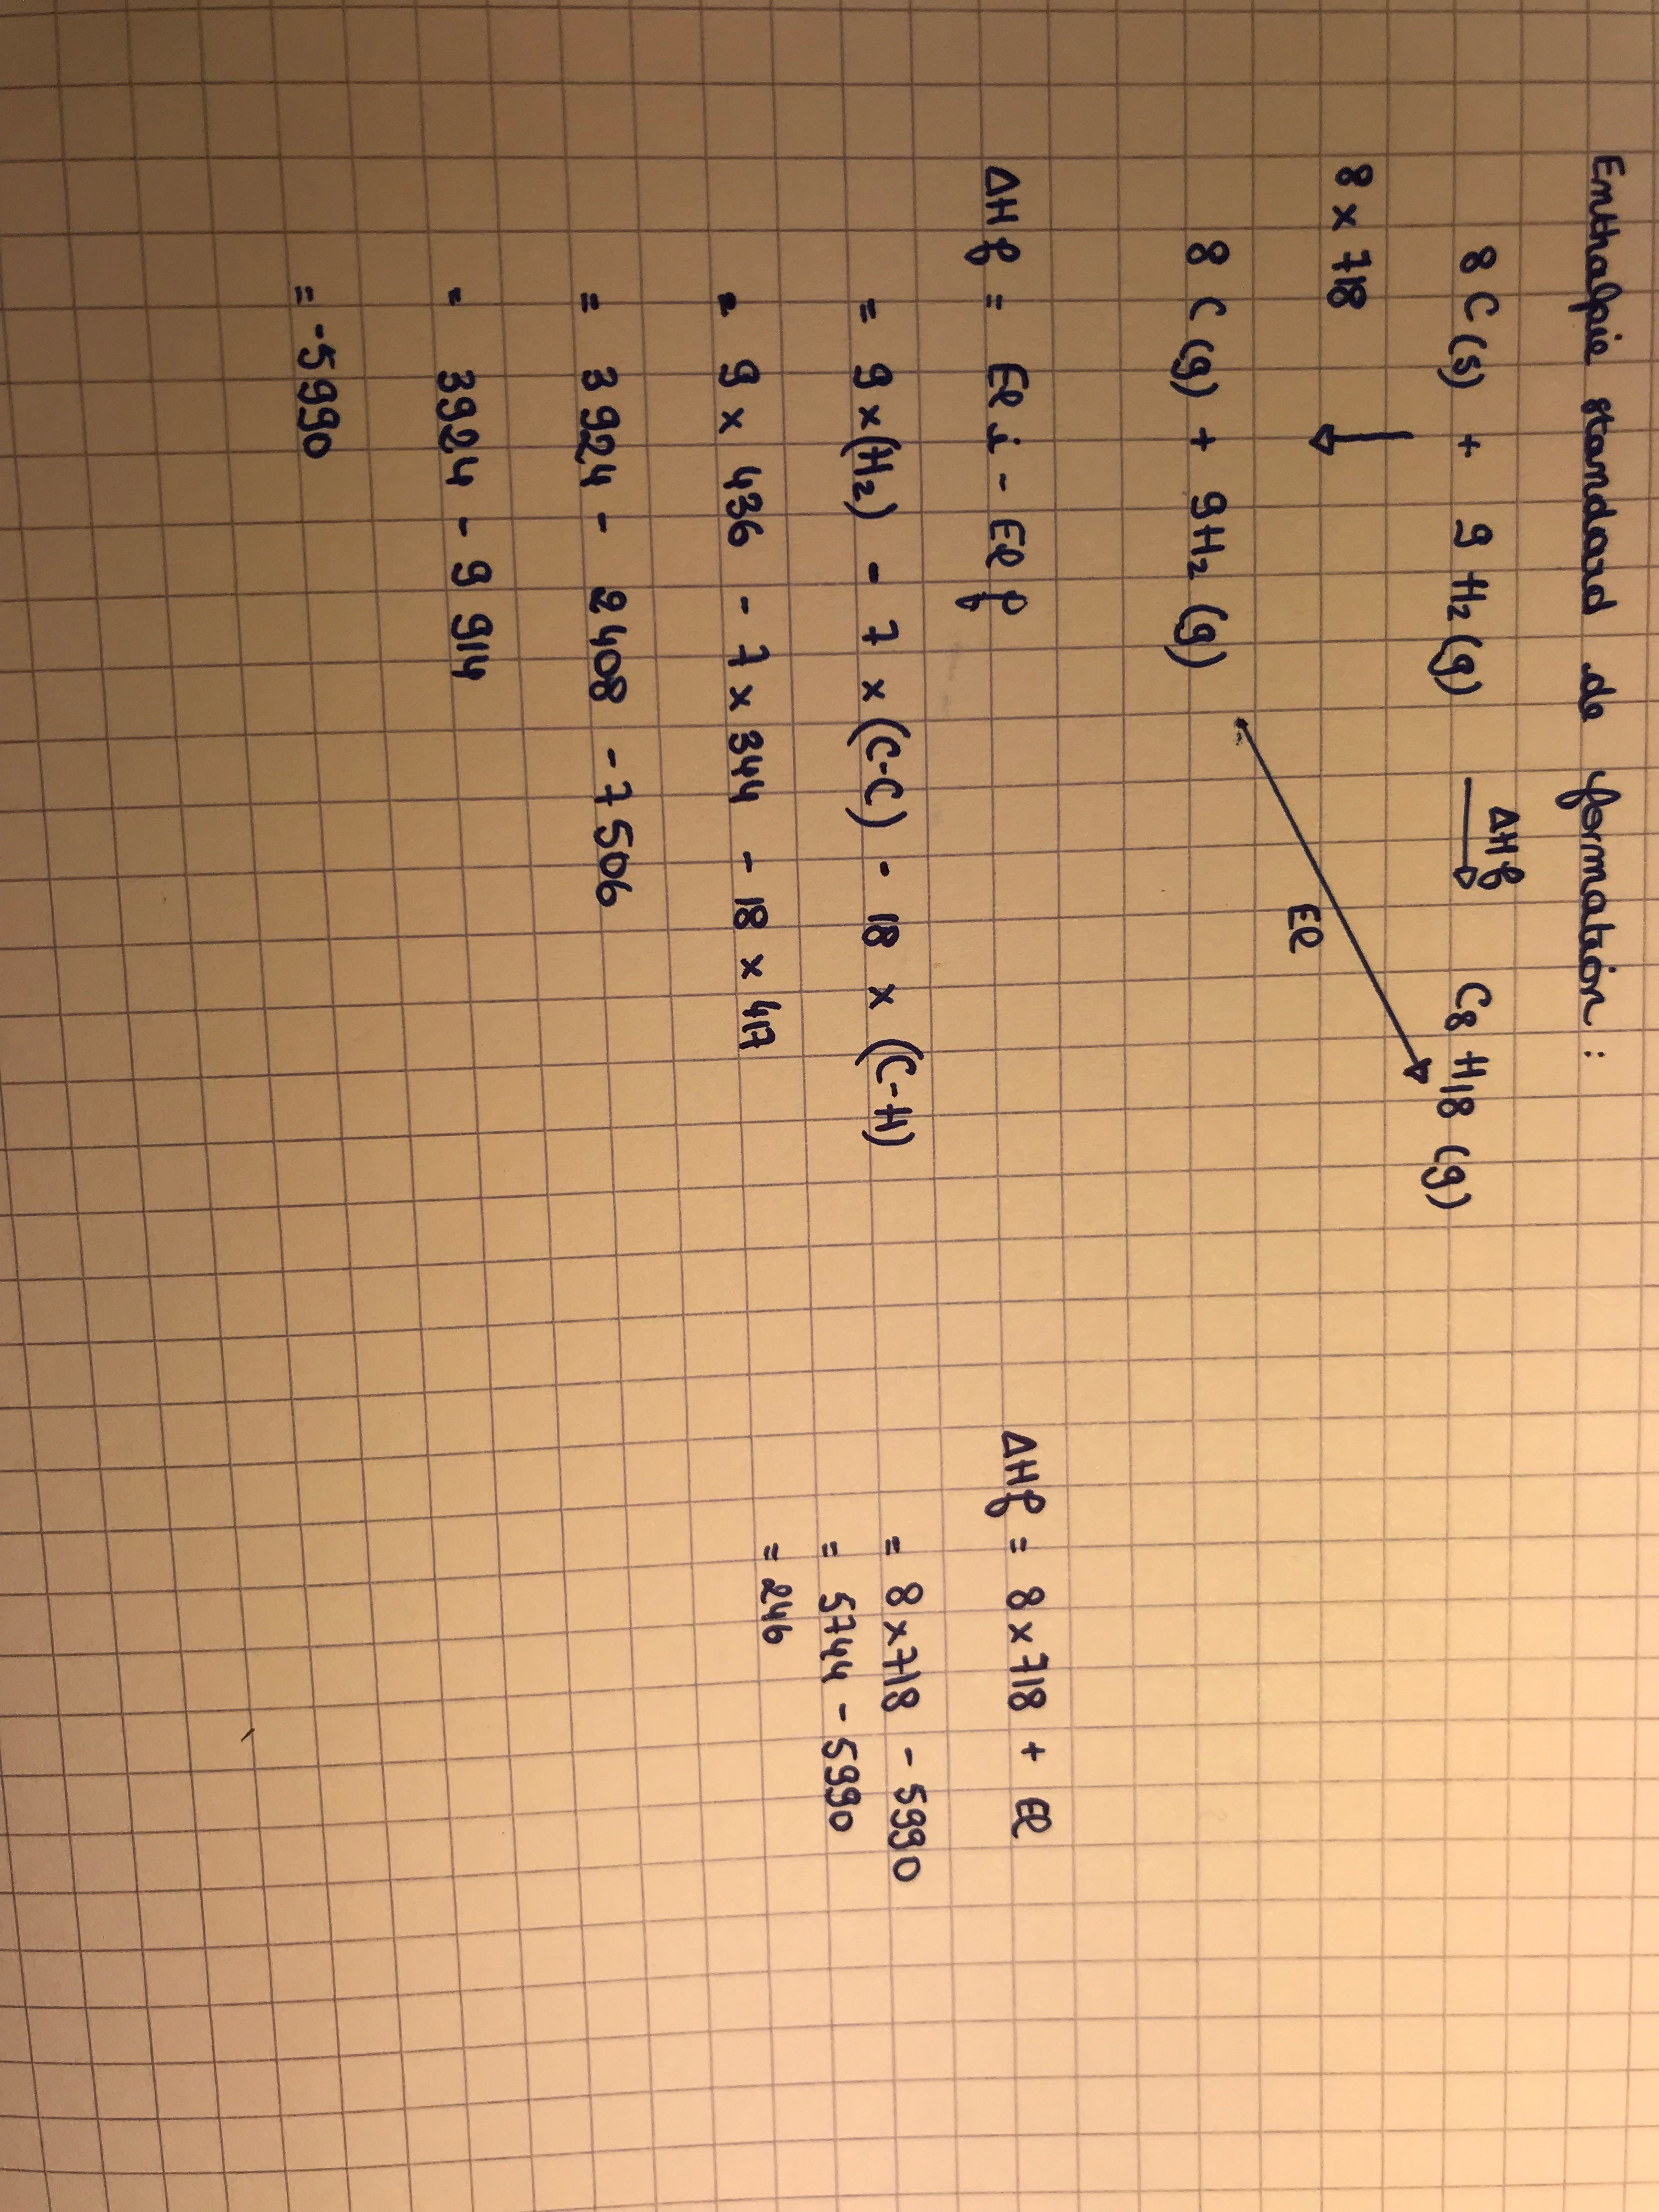 Enthalpie standard de formation :
8 C (s) + 9 H₂ (g) ΔHf → C₈ H₁₈ (g)
8 x 718 ↓ El
8 C (g) + 9H₂ (g)
ΔHf = El i - El f
= 9 x (H₂) - 7 x (C-C) - 18 x (C-H)
= 9 x 436 - 7 x 344 - 18 x 417
= 3924 - 2408 - 7506
= 3924 - 9 914
= -5990
ΔHf = 8 x 718 + El
= 8 x 718 - 5990
= 5744 - 5990
= 246